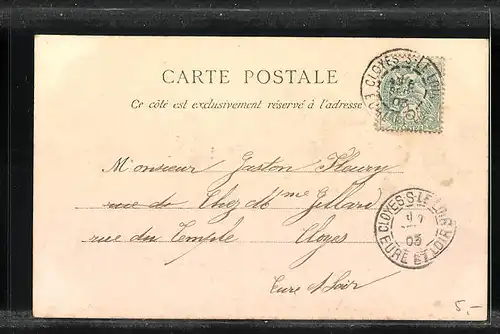 CARTE POSTALE
Ce côté est exclusivement réservé à l'adresse
Monsieur Gaston Fleury
rue du Chez Mme Gillard
rue du Temple Cloyes
Eure et Loir
CLOYES-S-LE-LOIR
03
5
CLOYES-S-LE-LOIR
03
EURE ET LOIR
5,-